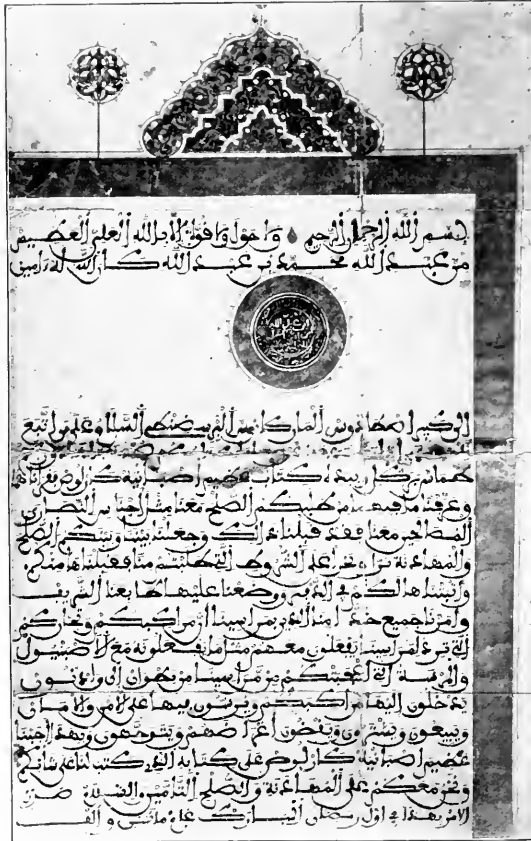 بسم الله الرحمان الرحيم ولا حول ولا قوة الا بالله العلي العظيم
من عبد الله محمد بن عبد الله كان الله له ءامين
الى كبير اصطادوس الماركانس البريسضنطي السلام على من اتبع
كتاب عظيم اصبانية كرلوص فقراناه
وعرفنا ما فيه من طلبكم الصلح معنا مثل اجناس النصارى
المصالحين معنا فقد قبلنا ذالك وجعلنا بيننا وبينكم الصلح
والمهادنة برا وبحرا على الشروط التي طلبتم منا فقبلناها منكم
واثبتناها لكم في الدفتر ووضعنا عليها طابعنا الشريف
وامرنا جميع خدامنا الذين بمراسينا ان مراكبكم وتجاركم
التي ترد لمراسينا يفعلون معهم مثل ما يفعلونه مع الاصبنيول
والمرسة التي اعجبتكم من مراسينا من تطوان الى واد نون
يدخلون اليها مراكبكم ويرسون فيها على الامن والامان
ويبيعون ويشترون ويقضون اغراضهم ويتوجهون وبهذا اجبنا
عظيم اصبانية كارلوص على كتابه الذي كتب لنا على شانكم
ونحن معكم على المهادنة والصلح التامين والسلام صدر
الامر بهذا في اول رمضان المبارك عام مائتين والف